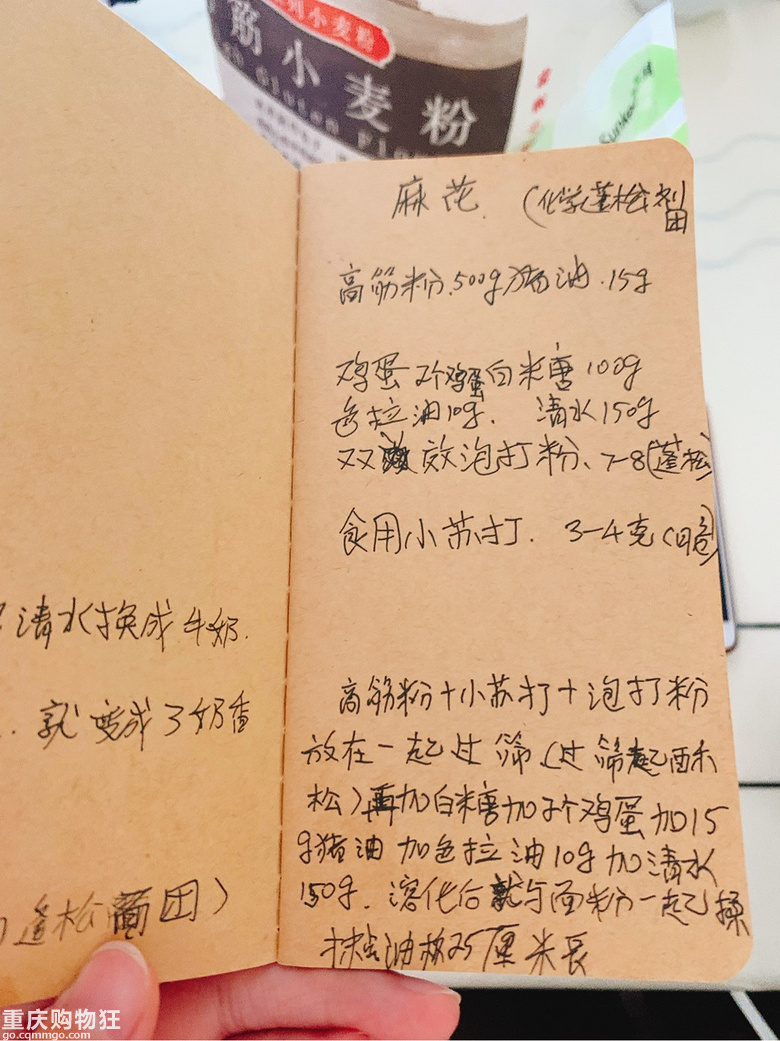 列小麦粉
筋小麦粉
Gluten Flo
Sunkee
清水换成牛奶.
. 就变成了奶香
蓬松面团)
麻花. (化学蓬松剂
团
高筋粉.500g 猪油.15g
鸡蛋2个鸡蛋白米糖100g
色拉油10g. 清水150g
双效泡打粉、7-8(蓬松)
食用小苏打. 3-4克(口色)
高筋粉+小苏打+泡打粉
放在一起过筛(过筛起酥
松)再加白糖加2个鸡蛋加15
g猪油加色拉油10g加清水
150g.溶化后就与面粉一起揉
抹油板25厘米长
重庆购物狂
go.cqmmgo.com